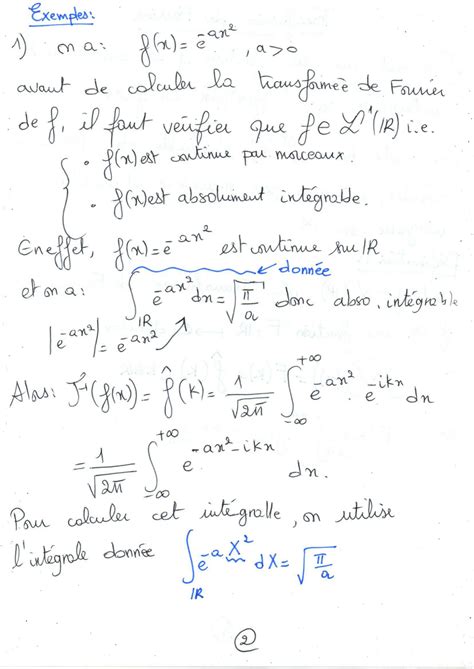 Exemples:
1) on a: f(x) = e^{-ax²}, a>0
avant de calculer la transformée de Fourier
de f, il faut vérifier que f ∈ L¹(IR) i.e.
• f(x) est continue par morceaux.
• f(x) est absolument intégrable.
En effet, f(x) = e^{-ax²} est continue sur IR
donnée
et on a: ∫_{IR} e^{-ax²} dx = √(π/a) donc abso. intégrable
|e^{-ax²}| = e^{-ax²}
Alors: F(f(x)) = f̂(k) = 1/√(2π) ∫_{-∞}^{+∞} e^{-ax²} · e^{-ikx} dx
= 1/√(2π) ∫_{-∞}^{+∞} e^{-ax²-ikx} dx.
Pour calculer cet intégralle, on utilise
l'intégrale donnée ∫_{IR} e^{-aX²} dX = √(π/a)
2